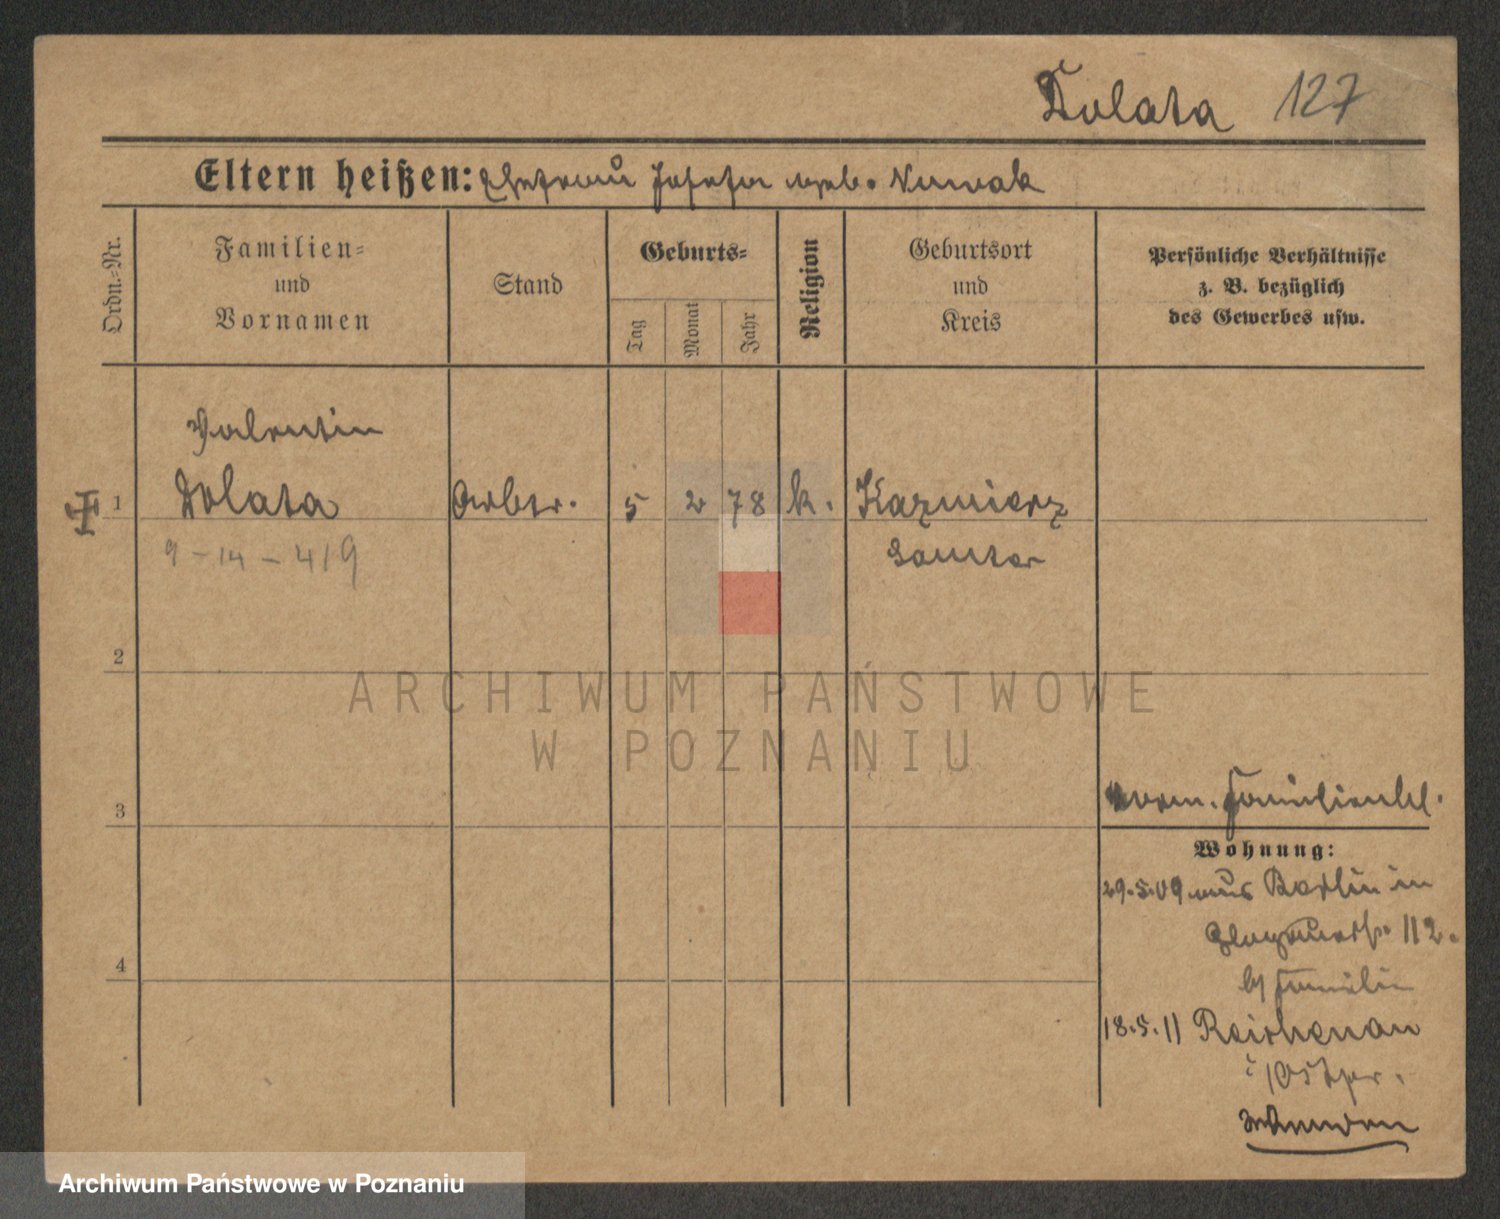 Dolata 127
Eltern heißen: Ehefrau Josefa geb. Nowak
Ordn.-Nr.
Familien-
und
Vornamen
Stand
Geburts-
Tag
Monat
Jahr
Religion
Geburtsort
und
Kreis
Persönliche Verhältnisse
z. B. bezüglich
des Gewerbes usw.
Valentin
1 Dolata Arbtr. 5 2 78 k. Kazmierz
9-14-419 Samter
2
ARCHIWUM PAŃSTWOWE
W POZNANIU
3
verm. Familienbl.
Wohnung:
29.5.09 aus Berlin in
Glogauerstr. 112.
4
b/ Familie
18.5.11 Reichenau
i/Ostpr.
Archiwum Państwowe w Poznaniu